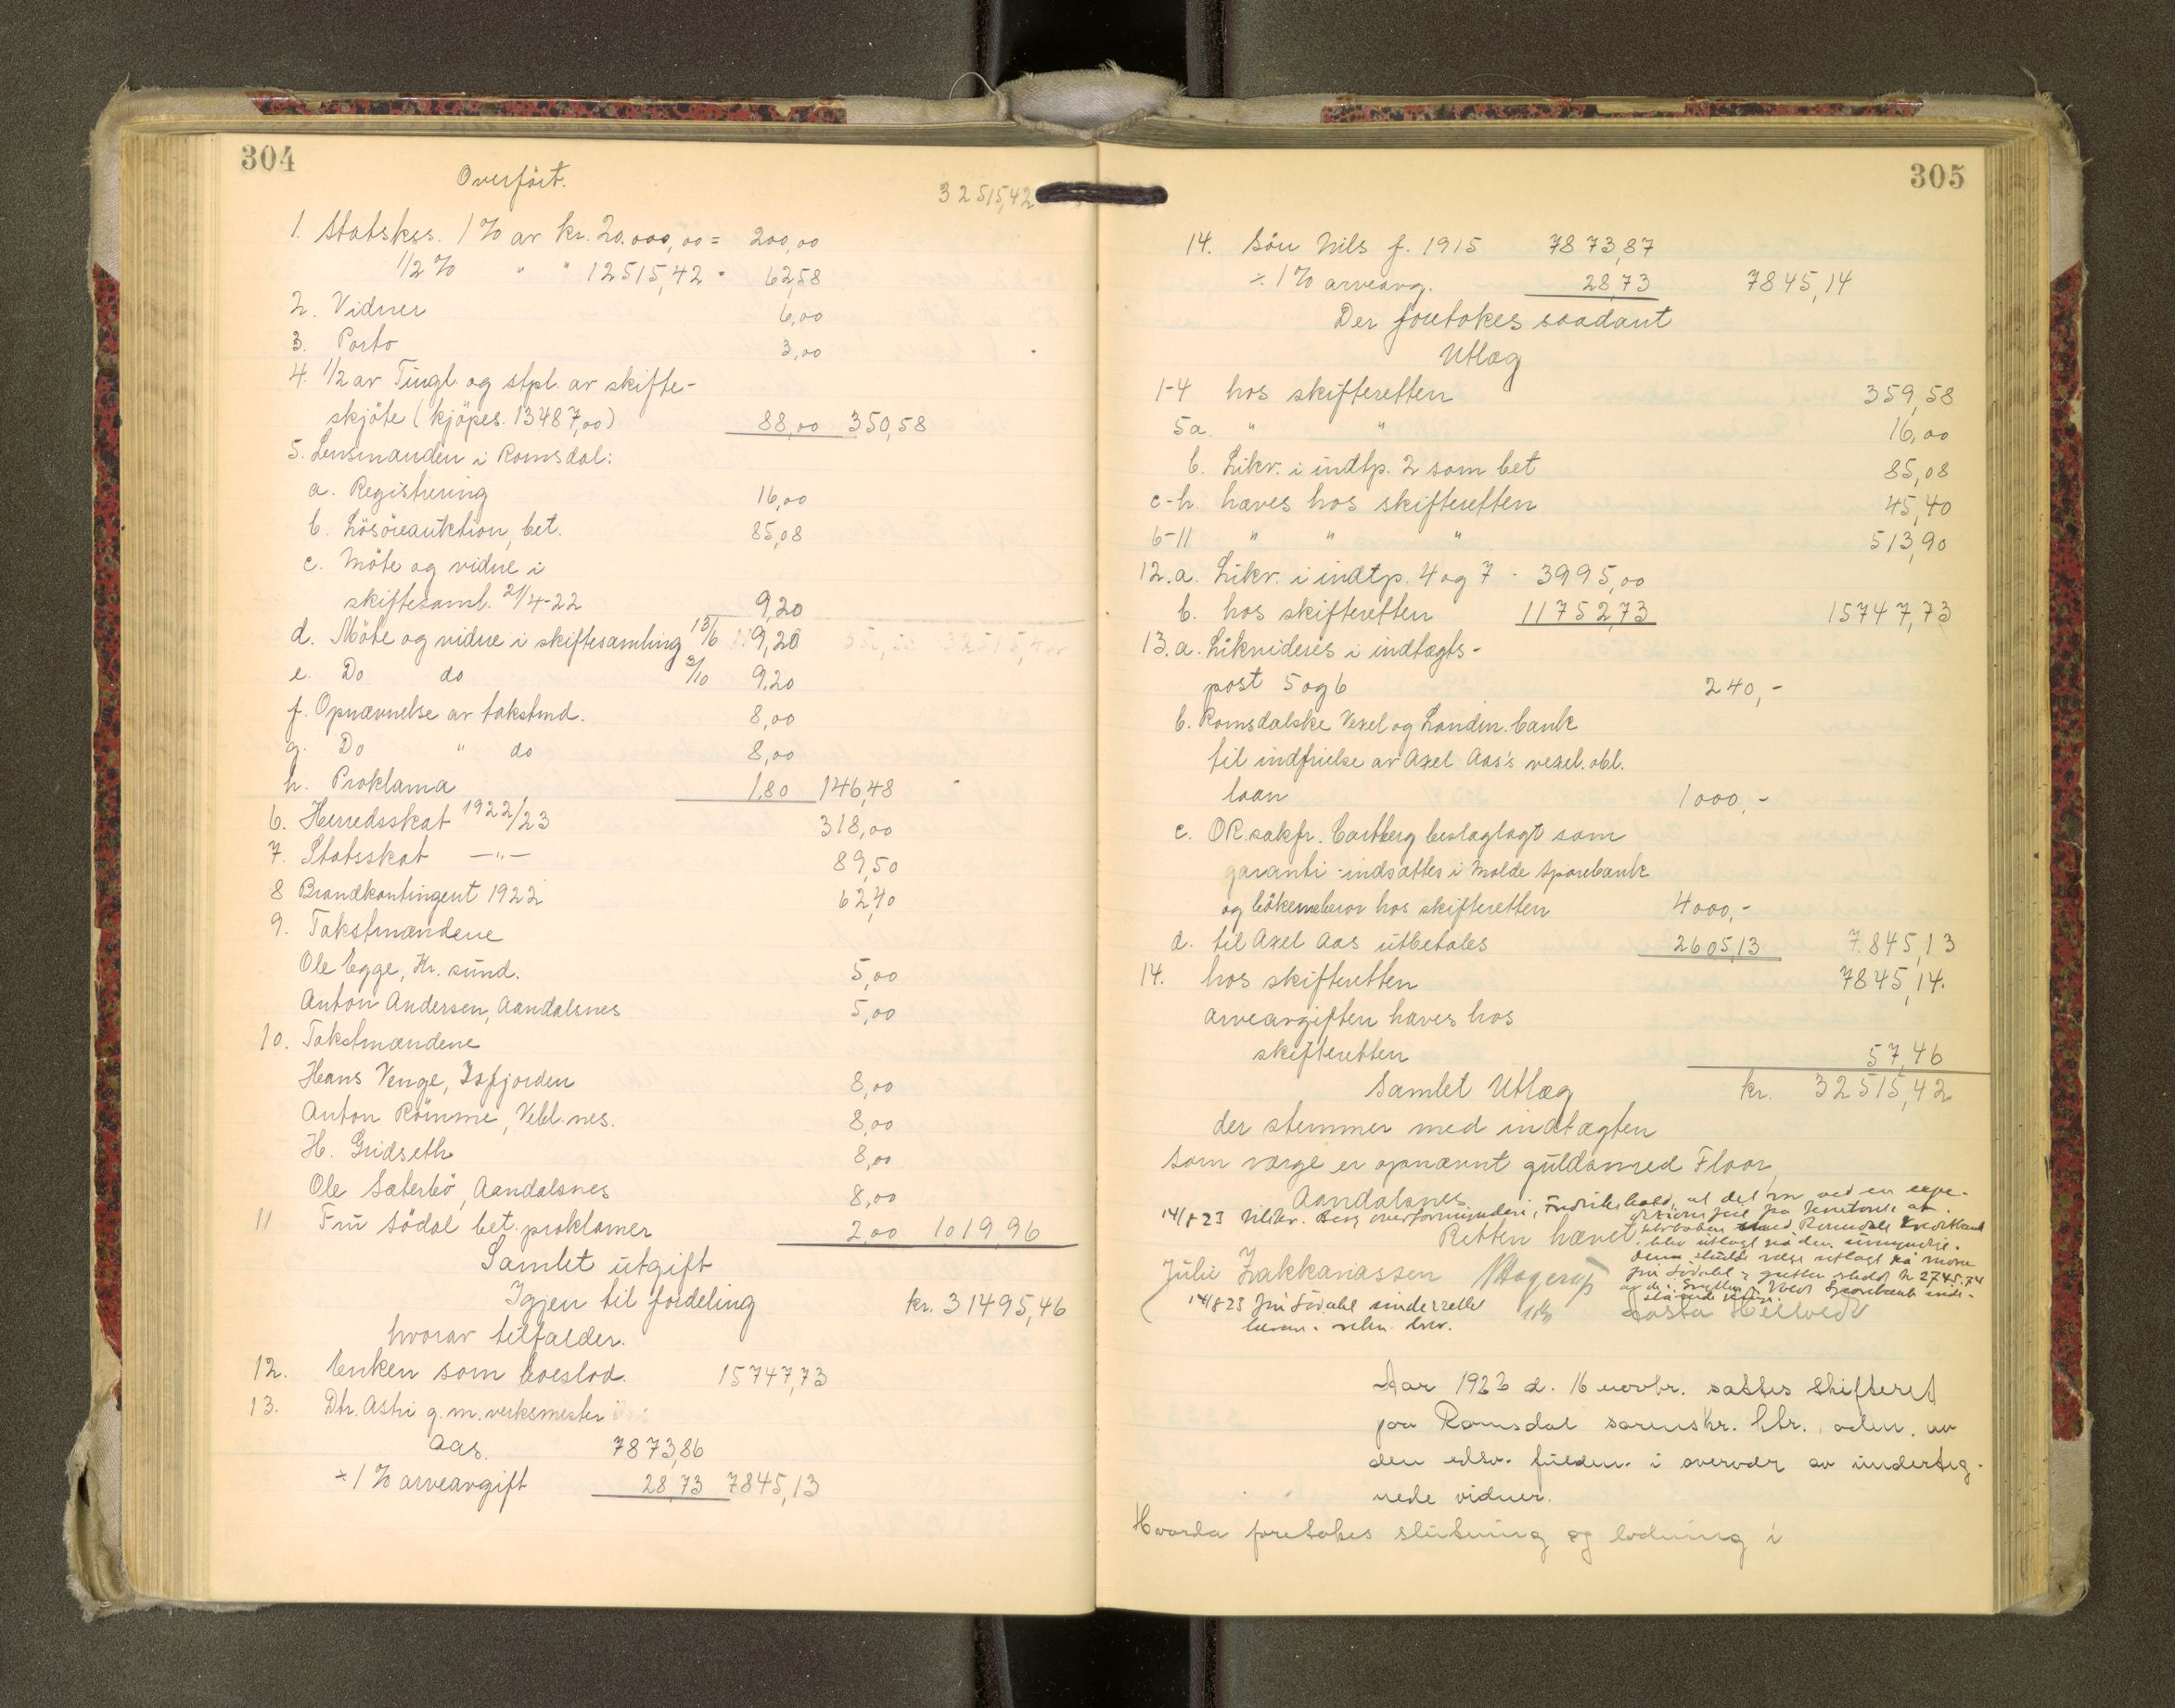 304
Overført.
32515,42
1. Statskas. 1 % av kr. 20.000,00 = 200,00
1/2 % " " 12515,42 " 62,58
2. Vidner 6,00
3. Porto 3,00
4. 1/2 av Tingl. og stpl. av skifte-
skjøte (kjøpes. 13487,00) 88,00 350,58
5. Lensmanden i Romsdal:
a. Registrering 16,00
b. Løsøreauktion, bet. 85,08
c. Møte og vidne i
skiftesaml. 21/4-22 9,20
d. Møte og vidne i skiftesamling 13/6 9,20
e. Do do 2/10 9,20
f. Opnævnelse av takstmd. 8,00
g. Do " do 8,00
h. Proklama 1,80 146,48
6. Herredsskat 1922/23 318,00
7. Statsskat —"— 89,50
8 Brandkontingent 1922 62,40
9. Takstmændene
Ole Egge, Kr. sund. 5,00
Anton Andersen, Aandalsnes 5,00
10. Takstmændene
Hans Venge, Isfjorden 8,00
Anton Rømme, Vebl.nes. 8,00
H. Gridseth 8,00
Ole Sæterbø, Aandalsnes 8,00
11 Fru Sødal bet. proklamer 2,00 1019,96
Samlet utgift
Igjen til fordeling kr. 31495,46
hvorav tilfalder.
12. Enken som boeslod. 15747,73
13. Dtr. Astri g.m. verksmester
Aas. 7873,86
÷ 1 % arveavgift 28,73 7845,13
305
14. Søn Nils f. 1915 7873,87
÷ 1 % arveavg. 28,73 7845,14
Der foretokes saadant
Utlæg
1-4 hos skifteretten 359,58
5a. " " 16,00
b. Likv. i indtp. 2 som bet 85,08
c-h. haves hos skifteretten 45,40
6-11 " " " 513,90
12.a. Likv. i indtp. 4 og 7 - 3995,00
b. hos skifteretten 11752,73 15747,73
13.a. Likvideres i indtægts-
post 5 og 6 240,-
b. Romsdalske Vexel og Landm. bank
til indfrielse av Axel Aas's vexel.obl.
laan 1000,-
c. OR.sakfr. Castberg beslaglagt som
garanti - indsættes i Molde Sparebank
og bøkene beror hos skifteretten 4000,-
d. til Axel Aas utbetales 2605,13 7.845,13
14. hos skifteretten 7845,14.
arveavgiften haves hos
skifteretten 57,46
Samlet Utlæg kr. 32515,42
der stemmer med indtægten
Som værge er opnævnt guldsmed Floor,
Aandalsnes
14/8 23 tilskr. Berg overformynderi, Fredrikshald, at det
Retten hævet
Julie Zakkariassen Hagerup
14/8 23 fru Sødahl
Aar 1923 d. 16 novbr. sattes Skifteret
paa Romsdal sorenskr. ktr., adm. av
den edsv. fuldm. i overvær av underteg-
nede vidner.
Hvorda foretokes slutning og lodning i